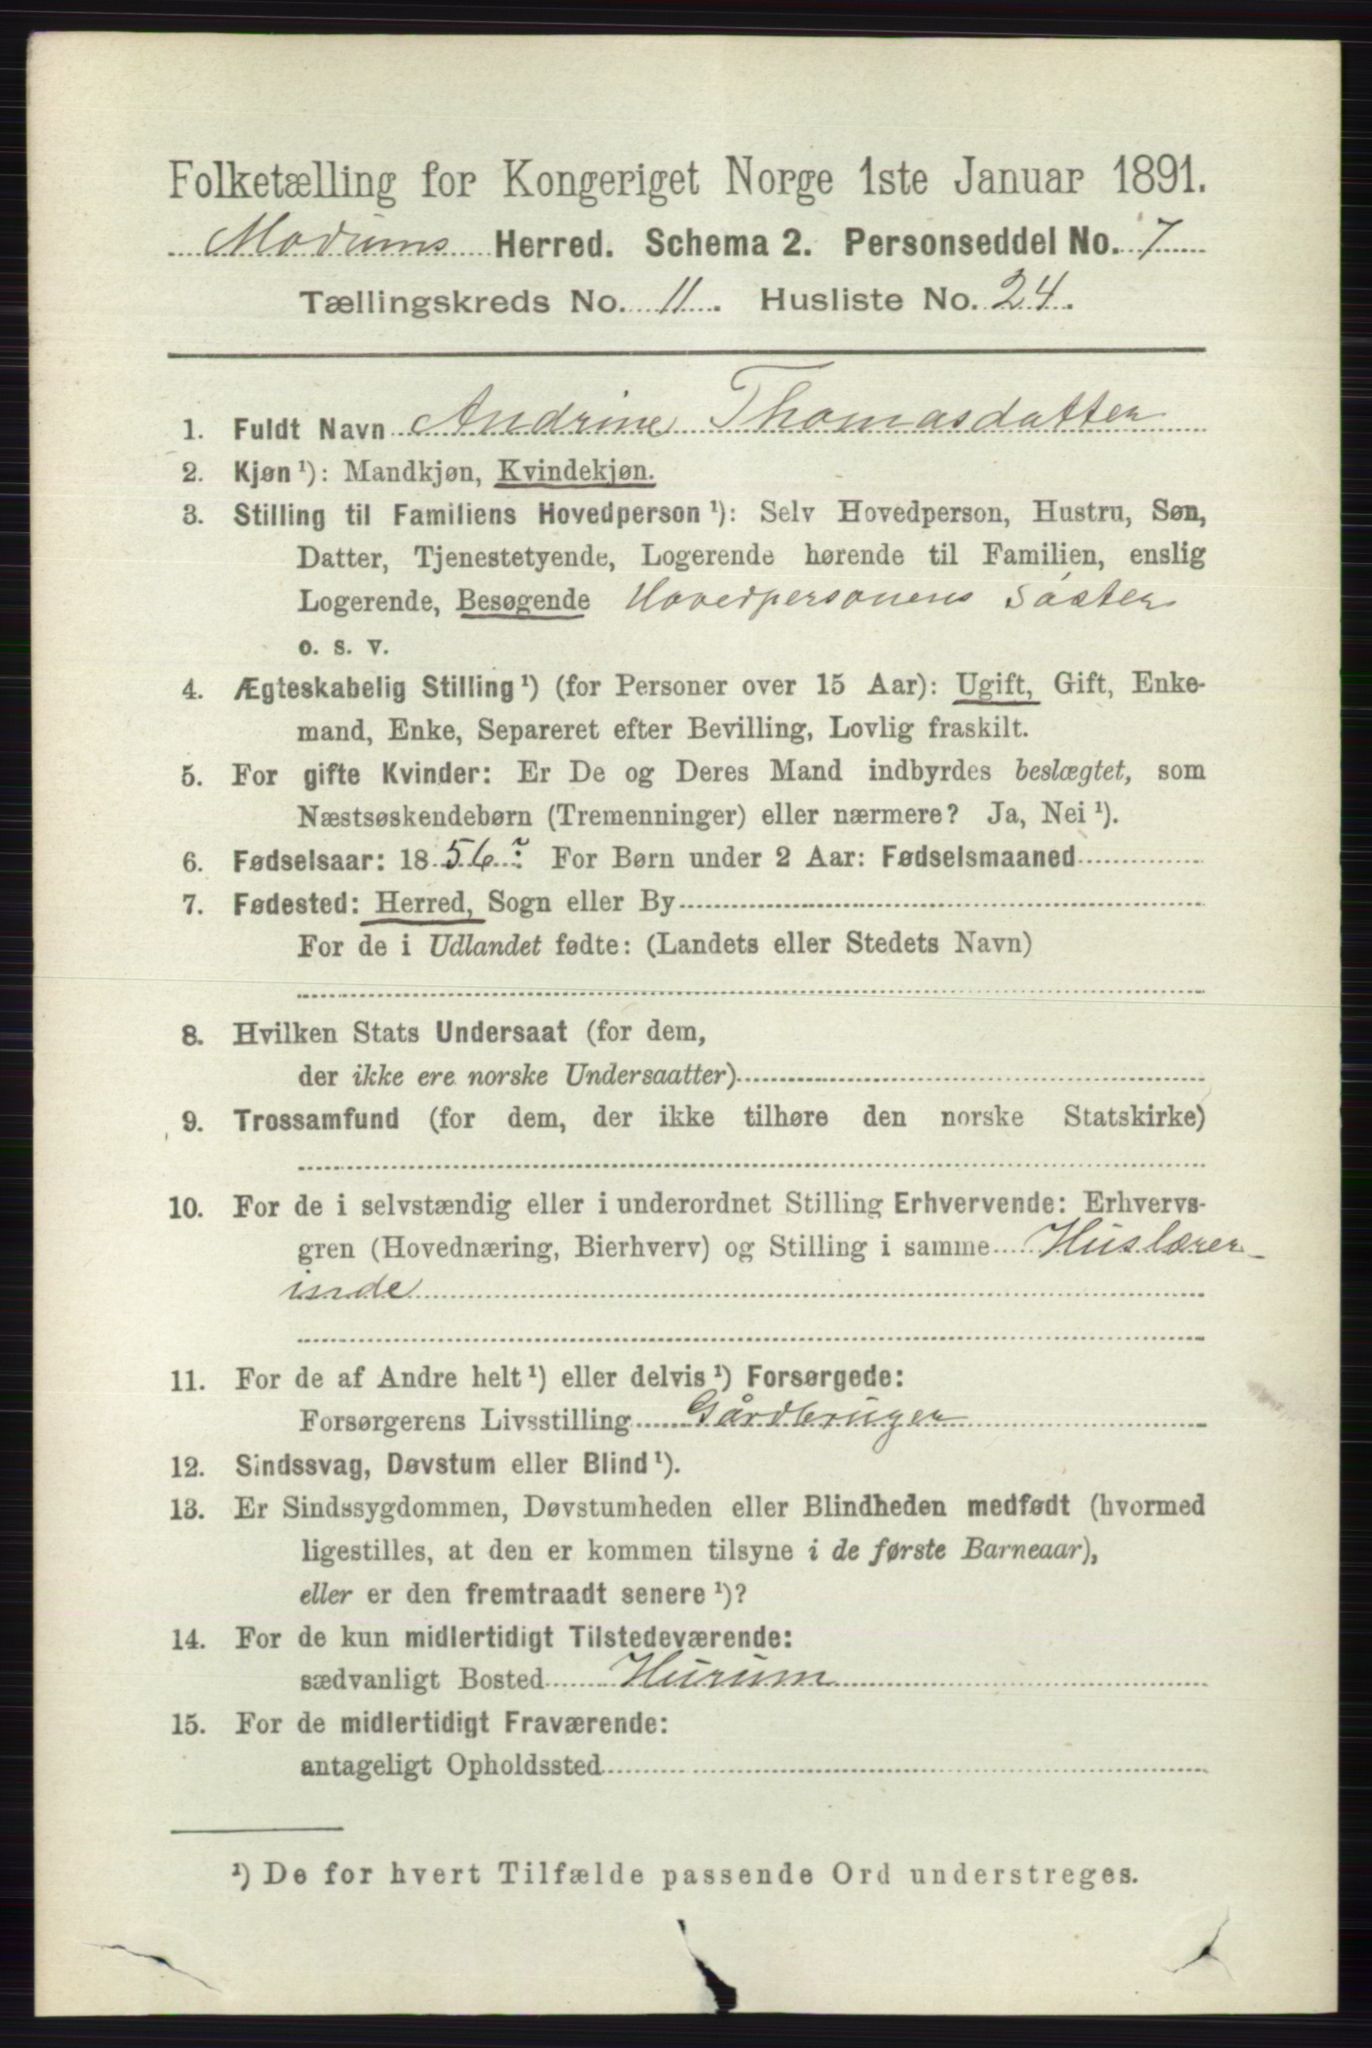 Folketælling for Kongeriget Norge 1ste Januar 1891.
Modums Herred. Schema 2. Personseddel No. 7
Tællingskreds No. 11. Husliste No. 24.
1. Fuldt Navn Andrine Thomasdatter
2. Kjøn ¹): Mandkjøn, Kvindekjøn.
3. Stilling til Familiens Hovedperson ¹): Selv Hovedperson, Hustru, Søn,
Datter, Tjenestetyende, Logerende hørende til Familien, enslig
Logerende, Besøgende Hovedpersonens Søster
o. s. v.
4. Ægteskabelig Stilling ¹) (for Personer over 15 Aar): Ugift, Gift, Enke-
mand, Enke, Separeret efter Bevilling, Lovlig fraskilt.
5. For gifte Kvinder: Er De og Deres Mand indbyrdes beslægtet, som
Næstsøskendebørn (Tremenninger) eller nærmere? Ja, Nei ¹).
6. Fødselsaar: 1856? For Børn under 2 Aar: Fødselsmaaned
7. Fødested: Herred, Sogn eller By
For de i Udlandet fødte: (Landets eller Stedets Navn)
8. Hvilken Stats Undersaat (for dem,
der ikke ere norske Undersaatter)
9. Trossamfund (for dem, der ikke tilhøre den norske Statskirke)
10. For de i selvstændig eller i underordnet Stilling Erhvervende: Erhvervs-
gren (Hovednæring, Bierhverv) og Stilling i samme Huslærer-
inde
11. For de af Andre helt ¹) eller delvis ¹) Forsørgede:
Forsørgerens Livsstilling Gårdbruger
12. Sindssvag, Døvstum eller Blind ¹).
13. Er Sindssygdommen, Døvstumheden eller Blindheden medfødt (hvormed
ligestilles, at den er kommen tilsyne i de første Barneaar),
eller er den fremtraadt senere ¹)?
14. For de kun midlertidigt Tilstedeværende:
sædvanligt Bosted Hurum
15. For de midlertidigt Fraværende:
antageligt Opholdssted
¹) De for hvert Tilfælde passende Ord understreges.